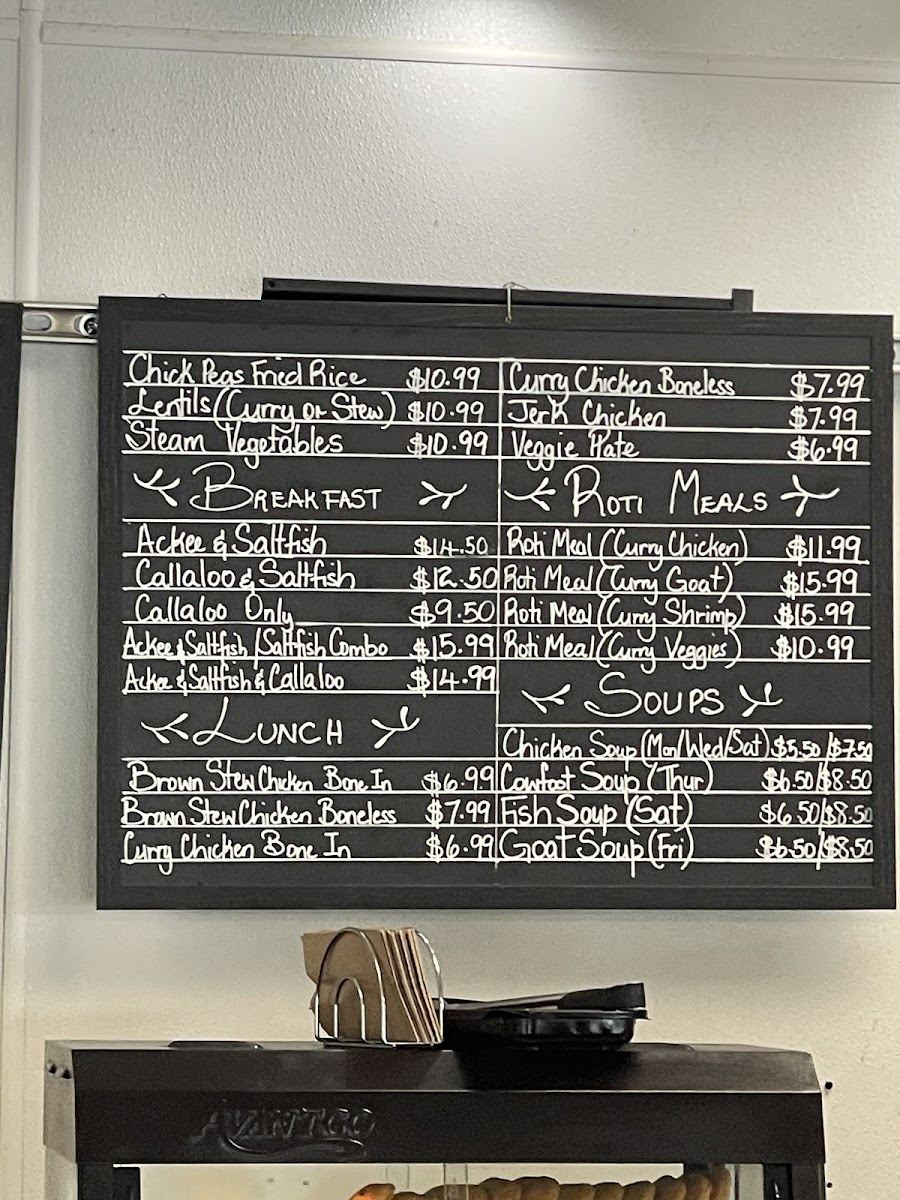 Chick Peas Fried Rice $10.99
Lentils (Curry or Stew) $10.99
Steam Vegetables $10.99
BREAKFAST
Ackee & Saltfish $14.50
Callaloo & Saltfish $12.50
Callaloo Only $9.50
Ackee & Saltfish/Saltfish Combo $15.99
Ackee & Saltfish & Callaloo $14.99
LUNCH
Brown Stew Chicken Bone In $6.99
Brown Stew Chicken Boneless $7.99
Curry Chicken Bone In $6.99
Curry Chicken Boneless $7.99
Jerk Chicken $7.99
Veggie Plate $6.99
ROTI MEALS
Roti Meal (Curry Chicken) $11.99
Roti Meal (Curry Goat) $15.99
Roti Meal (Curry Shrimp) $15.99
Roti Meal (Curry Veggies) $10.99
SOUPS
Chicken Soup (Mon/Wed/Sat) $5.50/$7.50
Cowfoot Soup (Thur) $6.50/$8.50
Fish Soup (Sat) $6.50/$8.50
Goat Soup (Fri) $6.50/$8.50
AVANTCO